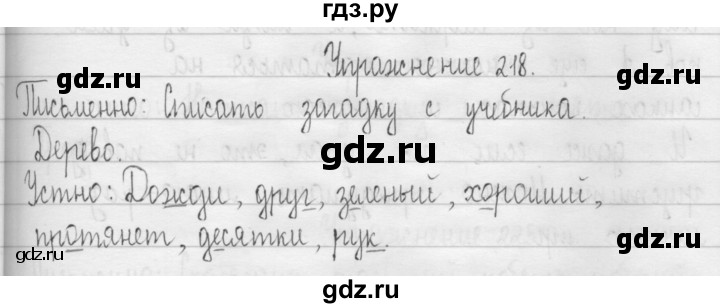 гдз.ру
Упражнение 218.
gdz.ru
gdz.ru
Письменно: Списать загадку с учебника.
gdz.ru
Дерево.
Устно: Дожди, друг, зеленый, хороший,
протянет, десятки, рук.
gdz.ru
gdz.ru
gdz.ru